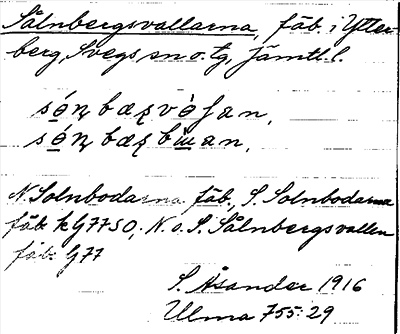 Sålnbergsvallarna, fäb. i Ytter-
berg, Svegs sn o. tg, Jämtl. l.
N. Solnbodarna fäb., S. Solnbodarna
fäb. k G7750; N. o. S. Sålnbergsvallen
fäb. G77
S. Åsander 1916
Ulma 755:29